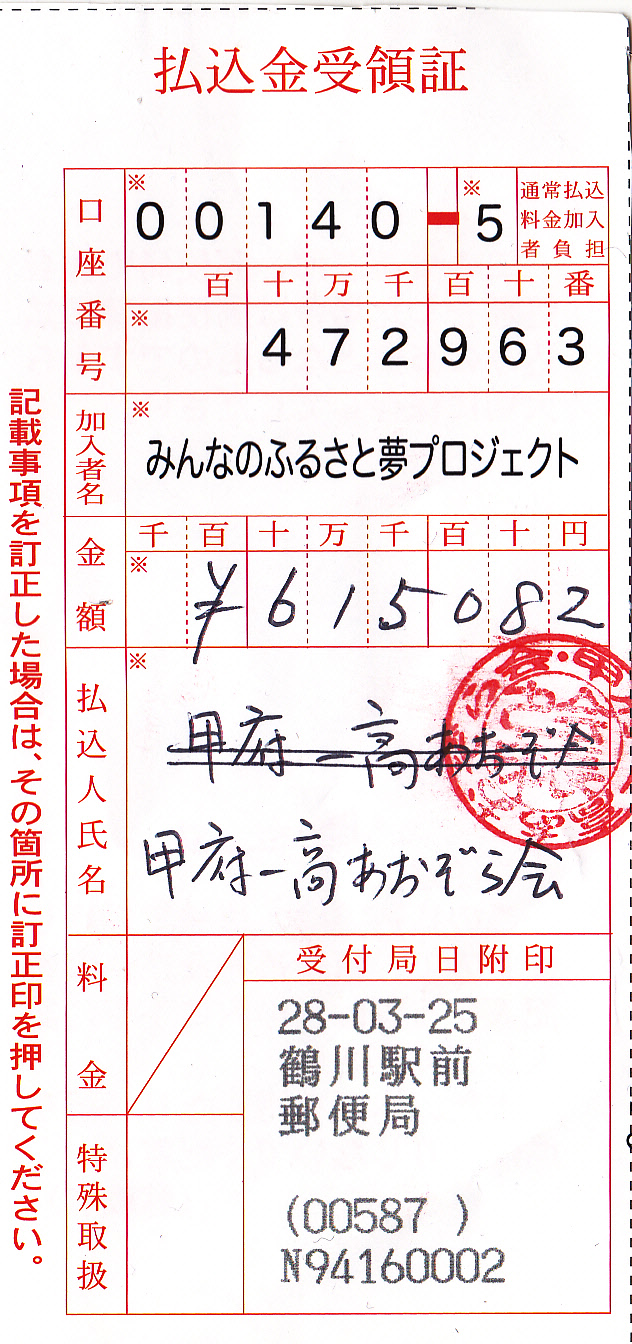 払込金受領証
口座番号
※ ※
00140-5
通常払込
料金加入
者負担
百十万千百十番
※
472963
加入者名
※
みんなのふるさと夢プロジェクト
金額
千百十万千百十円
※
¥615082
払込人氏名
※
甲府一高あおぞ会
甲府一高あおぞら会
料金
受付局日附印
28-03-25
鶴川駅前
郵便局
(00587 )
N94160002
特殊取扱
記載事項を訂正した場合は、その箇所に訂正印を押してください。